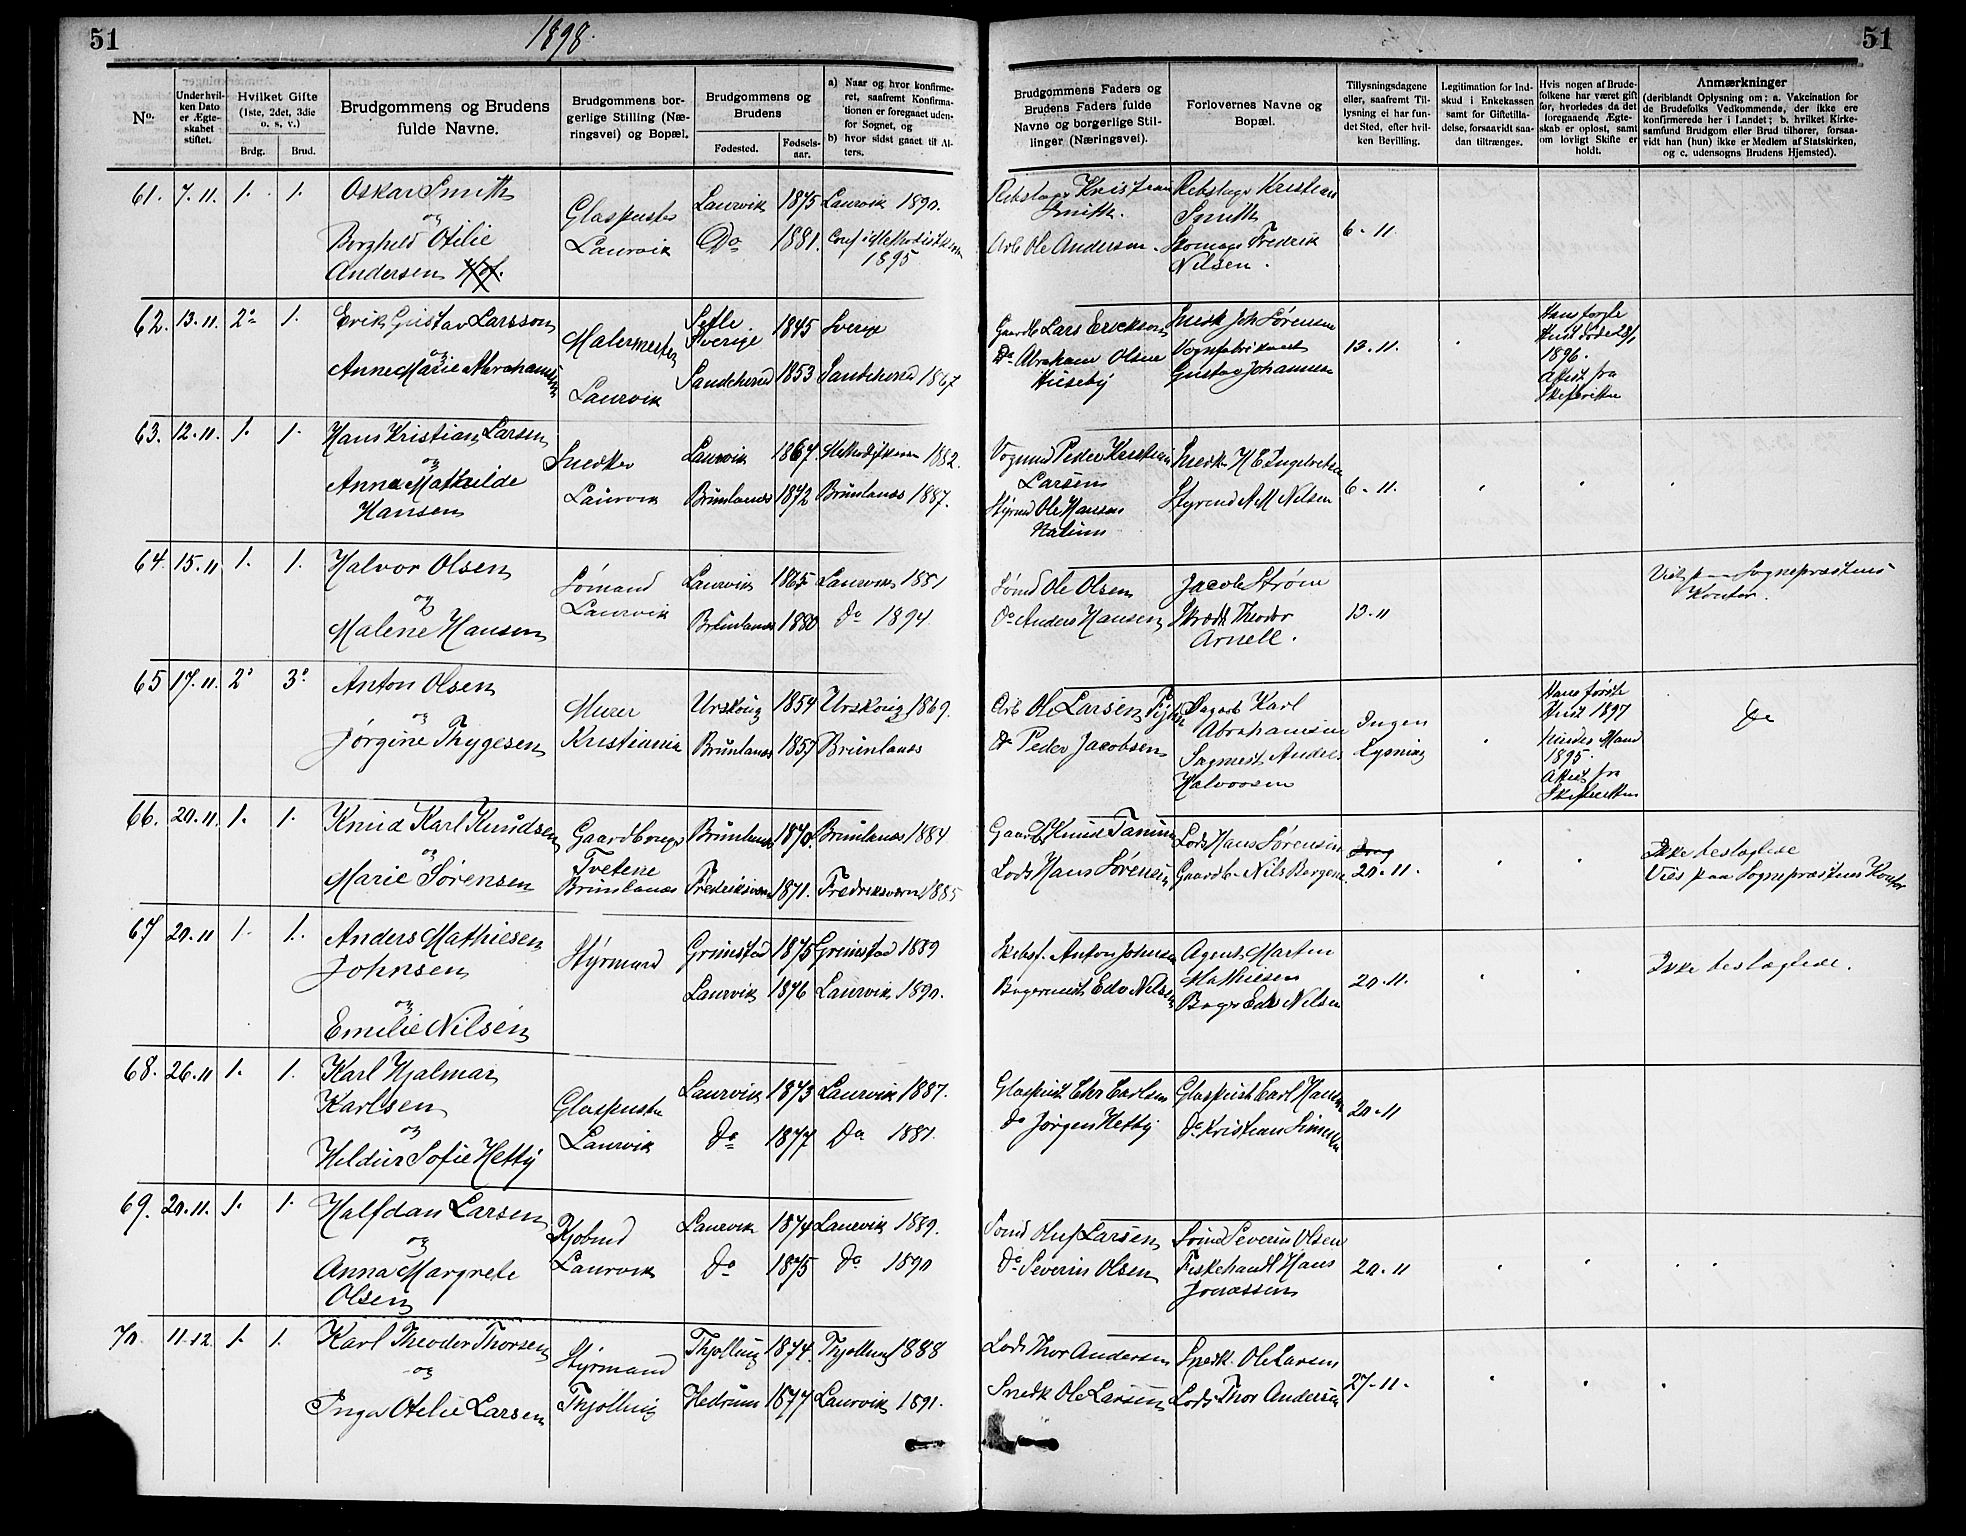 51
1898.
51
No.
Under hvilken Dato er Ægteskabet stiftet.
Hvilket Gifte (1ste, 2det, 3die o. s. v.)
Brdg.
Brud.
Brudgommens og Brudens fulde Navne.
Brudgommens borgerlige Stilling (Næringsvei) og Bopæl.
Brudgommens og Brudens
Fødested.
Fødselsaar.
a) Naar og hvor konfirmeret, saafremt Konfirmationen er foregaaet udenfor Sognet, og
b) hvor sidst gaaet til Alters.
Brudgommens Faders og Brudens Faders fulde Navne og borgerlige Stillinger (Næringsvei).
Forlovernes Navne og Bopæl.
Tillysningsdagene eller, saafremt Tillysning ei har fundet Sted, efter hvilken Bevilling.
Legitimation for Indskud i Enkekassen samt for Giftetilladelse, forsaavidt saadan tiltrænges.
Hvis nogen af Brudefolkene har været gift før, hvorledes da det foregaaende Ægteskab er opløst, samt om lovligt Skifte er holdt.
Anmærkninger
(deriblandt Oplysning om: a. Vakcination for de Brudefolks Vedkommende, der ikke ere konfirmerede her i Landet; b. hvilket Kirkesamfund Brudgom eller Brud tilhører, forsaavidt han (hun) ikke er Medlem af Statskirken, og c. udensogns Brudens Hjemsted).
61. 7.11. 1. 1. Oskar Smith
og
Borghild Otilie
Andersen
Glaspuster
Laurvik
Laurvik 1875 Laurvik 1890.
Do 1881. Conf i Methodistkirken
1895
Rebslager Kristian
Smith.
Arb Ole Andersen.
Rebslager Kristian
Smith
Skomager Fredrik
Nilsen.
6-11
62. 13.11. 2o 1. Erik Gustav Larsson
og
Anne Marie Abrahamsen
Malermester
Laurvik
Sverige 1845 Sverige
Sandeherred 1853 Sandeherred 1867
Gaardb Lars Erickson
Do Abraham Olsen
Huseby
Snedk Joh Sørensen
Vognfabrikant
Gustav Johannsen
13-11.
1896.
Attest fra
Skifteretten
63. 12.11. 1. 1. Hans Kristian Larsen
og
Anna Mathilde
Hansen
Snedker
Laurvik
Laurvik 1867. Methodistkirken 1882.
Brunlanæs 1872 Brunlanæs 1887.
Vognmd Peder Kristian
Larsen
Styrmd Ole Hansen
Snedk H E Ingebretsen
Styrmd A M Nilsen
6-11.
64. 15.11 1. 1. Halvor Olsen
og
Malene Hansen
Sømand
Laurvik
Laurvik 1865 Laurvik 1881
Brunlanæs 1880 Do 1894
Sømd Ole Olsen
Do Anders Hansen
Jacob Strøm
Skrædd Theodor
Arnell.
13-11
Viet paa Sognepræstens
Kontor.
65 17.11. 2o 3o Anton Olsen
og
Jørgine Thygesen
Murer
Kristiania
Urskoug 1854 Urskoug 1869.
Brunlanæs 1857 Brunlanæs
Arb Ole Larsen
Do Peder Jacobsen
Dagarb Karl
Abrahamsen
Sagmest Anders
Halvorsen
Ingen
Lysning
Hans første
Hust 1897
hendes Mand
1895.
Attest fra
Skifteretten
Do
66. 20.11. 1. 1. Knud Karl Knudsen
og
Marie Sørensen
Gaardbruger
Tvetene
Brunlanæs
Brunlanæs 1870. Brunlanæs 1884
Fredriksværn 1871. Fredriksværn 1885
Gaardb Knud Tanum
Lods Hans Sørensen
Lods Hans Sørensen
Gaardb Nils Bergene
20-11.
Ikke beslægtede
Viet paa Sognepræstens Kontor
67 20.11 1. 1. Anders Mathiesen
Johnsen
og
Emilie Nilsen
Styrmand
Grimstad 1875 Grimstad 1889
Laurvik 1876 Laurvik 1890.
Skibsf. Anton Johnsen
Bagermest Edv Nilsen
Agent Martin
Mathiesen
Bager Edv Nilsen
20-11.
Ikke beslægtede.
68. 26.11 1. 1. Karl Hjalmar
Karlsen
og
Hildur Sofie Hetty
Glaspuster
Laurvik
Laurvik 1873 Laurvik 1887.
Do 1877 Do 1891.
Glaspust Chr Carlsen
Do Jørgen Hetty
Glaspust Carl Hansen
Do Kristian Simensen
20-11
69. 20.11. 1. 1. Halfdan Larsen
og
Anna Margrete
Olsen
Kjøbmd
Laurvik
Laurvik 1874 Laurvik 1889.
Do 1875 Do 1890
Sømd Oluf Larsen
Do Severin Olsen
Sømd Severin Olsen
Fiskehandl Hans
Jonassen
20-11
70. 11.12. 1. 1. Karl Theodor Thorsen
og
Inga Otilie Larsen
Styrmand
Thjølling
Thjølling 1874. Thjølling 1888
Hedrum 1877 Laurvik 1891.
Lods Thor Andersen
Snedk Ole Larsen
Snedk. Ole Larsen
Lods Thor Andersen
27-11.